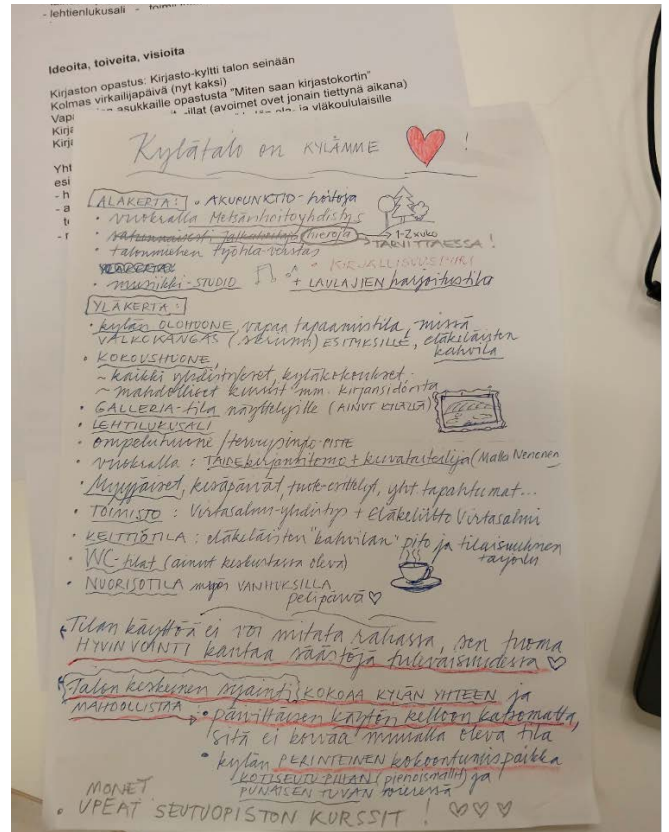 - lehtienlukusali -
Ideoita, toiveita, visioita
Kirjaston opastus: Kirjasto-kyltti talon seinään
Kolmas virkailijapäivä (nyt kaksi)
asukkaille opastusta "Miten saan kirjastokortin"
-illat (avoimet ovet jonain tiettynä aikana)
Kirja ja yläkoululaisille
Kirj
Yht
esi
- h
- a
Kylätalo on KYLÄMME !
ALAKERTA: • AKUPUNKTIO-hoitoja
• vuokralla Metsänhoitoyhdistys
hieroja 1-2 x vko
TARVITTAESSA!
• talonmiehen työtila-varasto
KIRJALLISUUSPIIRI
• musiikki-STUDIO + LAULAJIEN harjoitustila
YLÄKERTA:
• kylän OLOHUONE, vapaa tapaamistila, missä
VALKOKANGAS (screeni) ESITYKSILLE, eläkeläisten
kahvila
• KOKOUSHUONE,
~ kaikki yhdistykset, kyläkokoukset
~ mahdolliset kurssit mm. kirjansidonta
• GALLERIA-tila näyttelyille (AINUT KYLÄLLÄ)
• LEHTILUKUSALI
• ompeluhuone / terveyspiste
• vuokralla: TAIDEkirjansitomo + kuvataiteilija (Mallo Nenonen
• Myyjäiset, kesäpäivät, tuote-esittelyt, yht. tapahtumat...
• TOIMISTO: Virtasalmi-yhdistys + Eläkeliitto Virtasalmi
• KEITTIÖTILA: eläkeläisten "kahvilan" pito ja tilaisuuksien
tarjoilu
• WC-tilat (ainut keskustassa oleva)
• NUORISOTILA myös VANHUKSILLA
pelipäivä ♡
Tilan käyttöä ei voi mitata rahassa, sen tuoma
HYVINVOINTI kantaa säästöjä tulevaisuudessa ♡
Talon keskeinen sijainti KOKOAA KYLÄN YHTEEN ja
MAHDOLLISTAA • päivittäisen käytön kelloon katsomatta,
sitä ei korvaa muualla oleva tila
• kylän PERINTEINEN kokoontumispaikka
KOTISEUTUPIHAN (pienoismallit) ja
PUNAISEN TUVAN vieressä
MONET
• UPEAT SEUTUOPISTON KURSSIT! ♡♡♡